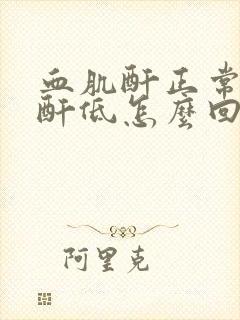 血肌酐正常
酐低怎麼回
阿里克